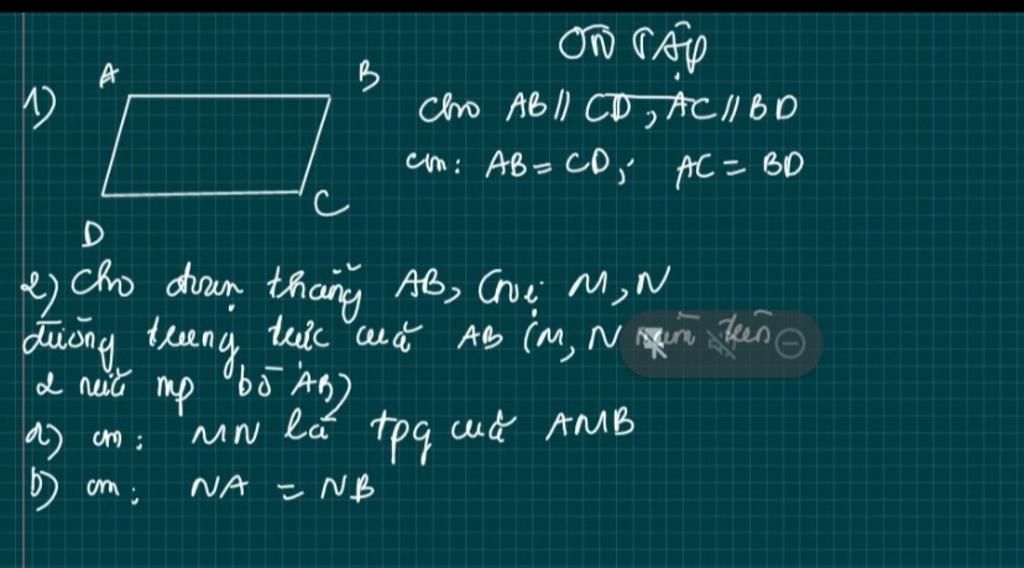 ÔN TẬP
1)
A
B
Cho AB // CD, AC // BD
cm: AB = CD; AC = BD
C
D
2) Cho đoạn thẳng AB, Gọi M, N
đường trung trực của AB (M, N nằm trên
2 nửa mp bờ AB)
a) cm: MN là tpg của AMB
b) cm: NA = NB